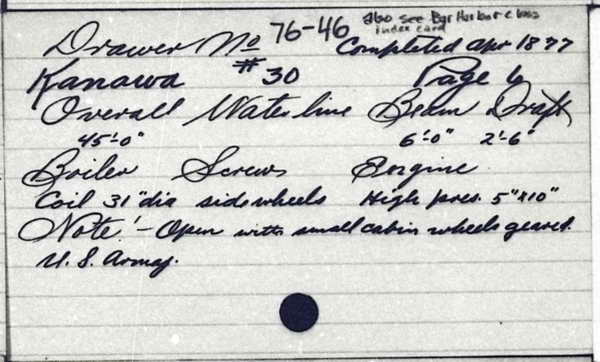 also see Bar Harbor class
index card
Drawer No 76-46 Completed Apr 1877
Kanawa #30 Page 6
Overall Waterline Beam Draft
45'-0" 6'-0" 2'-6"
Boiler Screws Engine
Coil 31" dia sidewheels High pres. 5"x10"
Note! - Open with small cabin wheels geared.
U. S. Army.